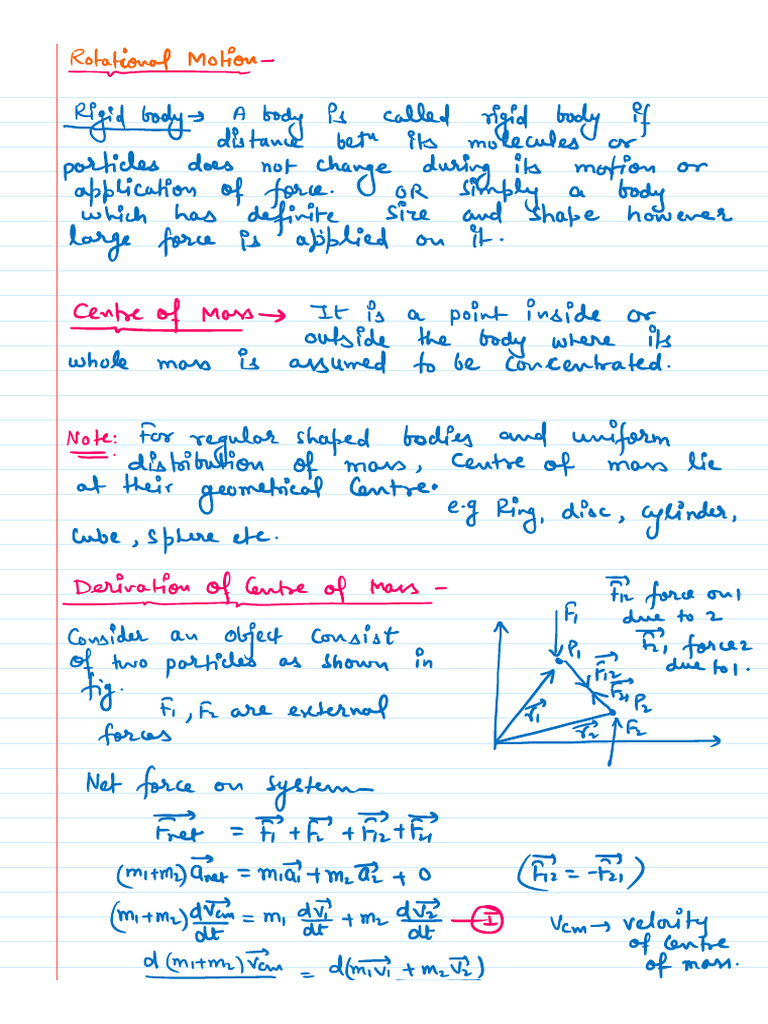 Rotational Motion -
Rigid body → A body is called rigid body if
distance betⁿ its molecules or
particles does not change during its motion or
application of force. OR simply a body
which has definite size and shape however
large force is applied on it.
Centre of Mass → It is a point inside or
outside the body where its
whole mass is assumed to be concentrated.
Note: For regular shaped bodies and uniform
distribution of mass, centre of mass lie
at their geometrical centre.
e.g Ring, disc, cylinder,
cube, sphere etc.
Derivation of Centre of Mass -
Consider an object consist
of two particles as shown in
fig.
F₁, F₂ are external
forces
F⃗₁₂ force on 1
due to 2
F⃗₂₁ force 2
due to 1.
F₁
P₁
F⃗₁₂
F⃗₂₁
P₂
r⃗₁
r⃗₂
F₂
Net force on system -
F⃗net = F⃗₁ + F⃗₂ + F⃗₁₂ + F⃗₂₁
(m₁+m₂) a⃗net = m₁a⃗₁ + m₂a⃗₂ + 0 (F⃗₁₂ = -F⃗₂₁)
(m₁+m₂) dv⃗cm/dt = m₁ dv⃗₁/dt + m₂ dv⃗₂/dt — I
Vcm → velocity
of centre
of mass.
d(m₁+m₂)v⃗cm = d(m₁v⃗₁ + m₂v⃗₂)